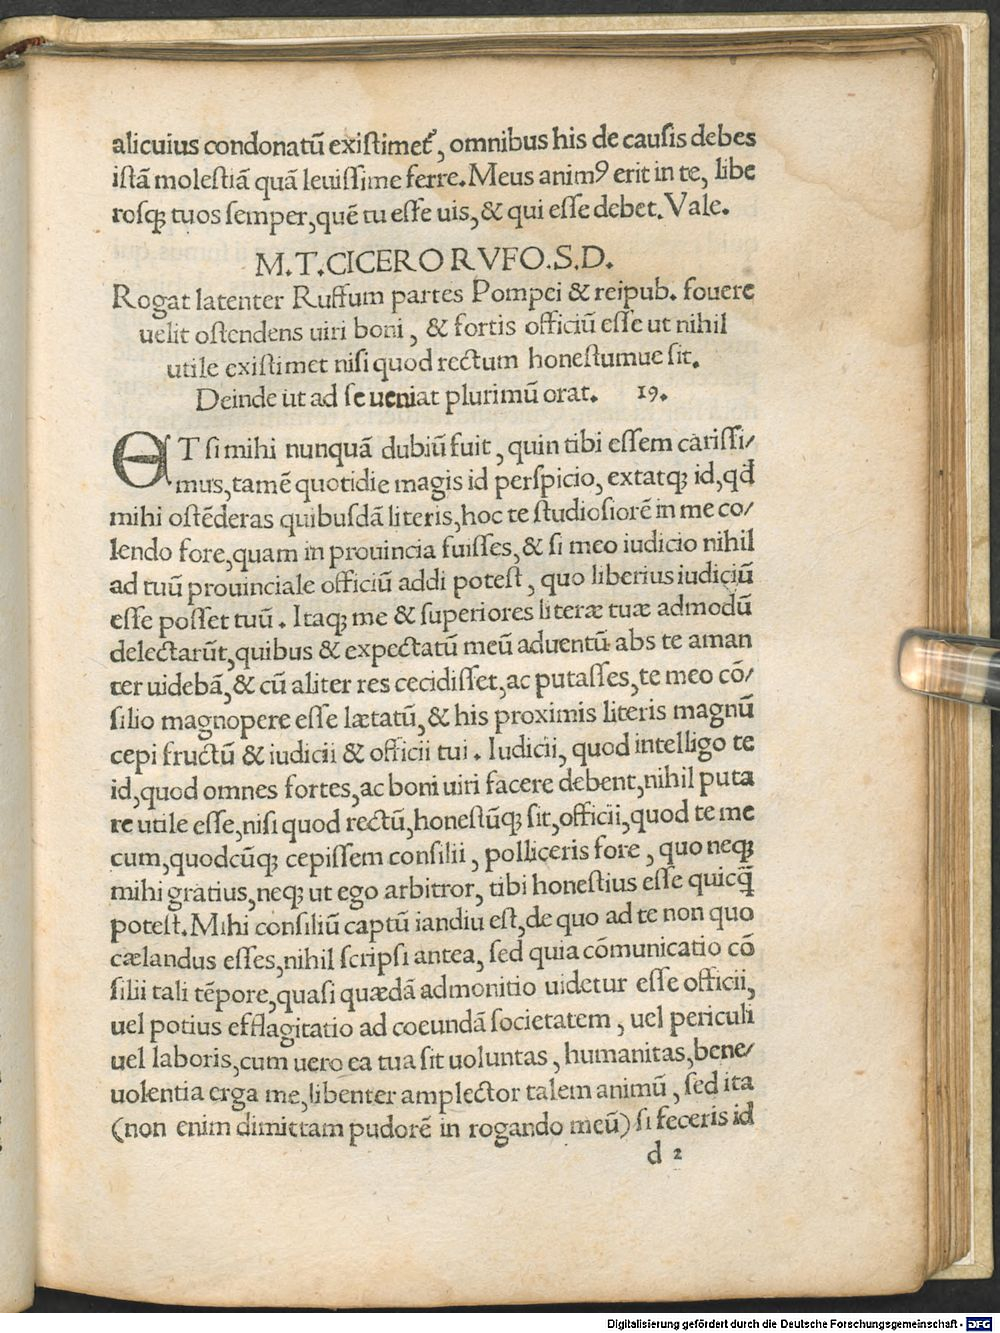 alicuius condonatū existimet᷑, omnibus his de causis debes
istā molestiā quā leuissime ferre. Meus animꝰ erit in te, libe
rosq; tuos semper, quē tu esse uis, & qui esse debet. Vale.
M.T.CICERO RVFO.S.D.
Rogat latenter Ruffum partes Pompei & reipub. fouere
uelit ostendens uiri boni, & fortis officiū esse ut nihil
utile existimet nisi quod rectum honestumue sit.
Deinde ut ad se ueniat plurimū orat. 19.
ET si mihi nunquā dubiū fuit, quin tibi essem carissi/
mus, tamē quotidie magis id perspicio, extatq; id, qd̄
mihi ostēderas quibusdā literis, hoc te studiosiorē in me co/
lendo fore, quam in prouincia fuisses, & si meo iudicio nihil
ad tuū prouinciale officiū addi potest, quo liberius iudiciū
esse posset tuū. Itaq; me & superiores literæ tuæ admodū
delectarūt, quibus & expectatū meū aduentū abs te aman
ter uidebā, & cū aliter res cecidisset, ac putasses, te meo cō/
silio magnopere esse lætatū, & his proximis literis magnū
cepi fructū & iudicii & officii tui. Iudicii, quod intelligo te
id, quod omnes fortes, ac boni uiri facere debent, nihil puta
re utile esse, nisi quod rectū, honestūq; sit, officii, quod te me
cum, quodcūq; cepissem consilii, polliceris fore, quo neq;
mihi gratius, neq; ut ego arbitror, tibi honestius esse quicq̄
potest. Mihi consiliū captū iandiu est, de quo ad te non quo
cælandus esses, nihil scripsi antea, sed quia cōmunicatio cō
silii tali tēpore, quasi quædā admonitio uidetur esse officii,
uel potius efflagitatio ad coeundā societatem, uel periculi
uel laboris, cum uero ea tua sit uoluntas, humanitas, bene/
uolentia erga me, libenter amplector talem animū, sed ita
(non enim dimittam pudorē in rogando meū) si feceris id
d 2
Digitalisierung gefördert durch die Deutsche Forschungsgemeinschaft - DFG